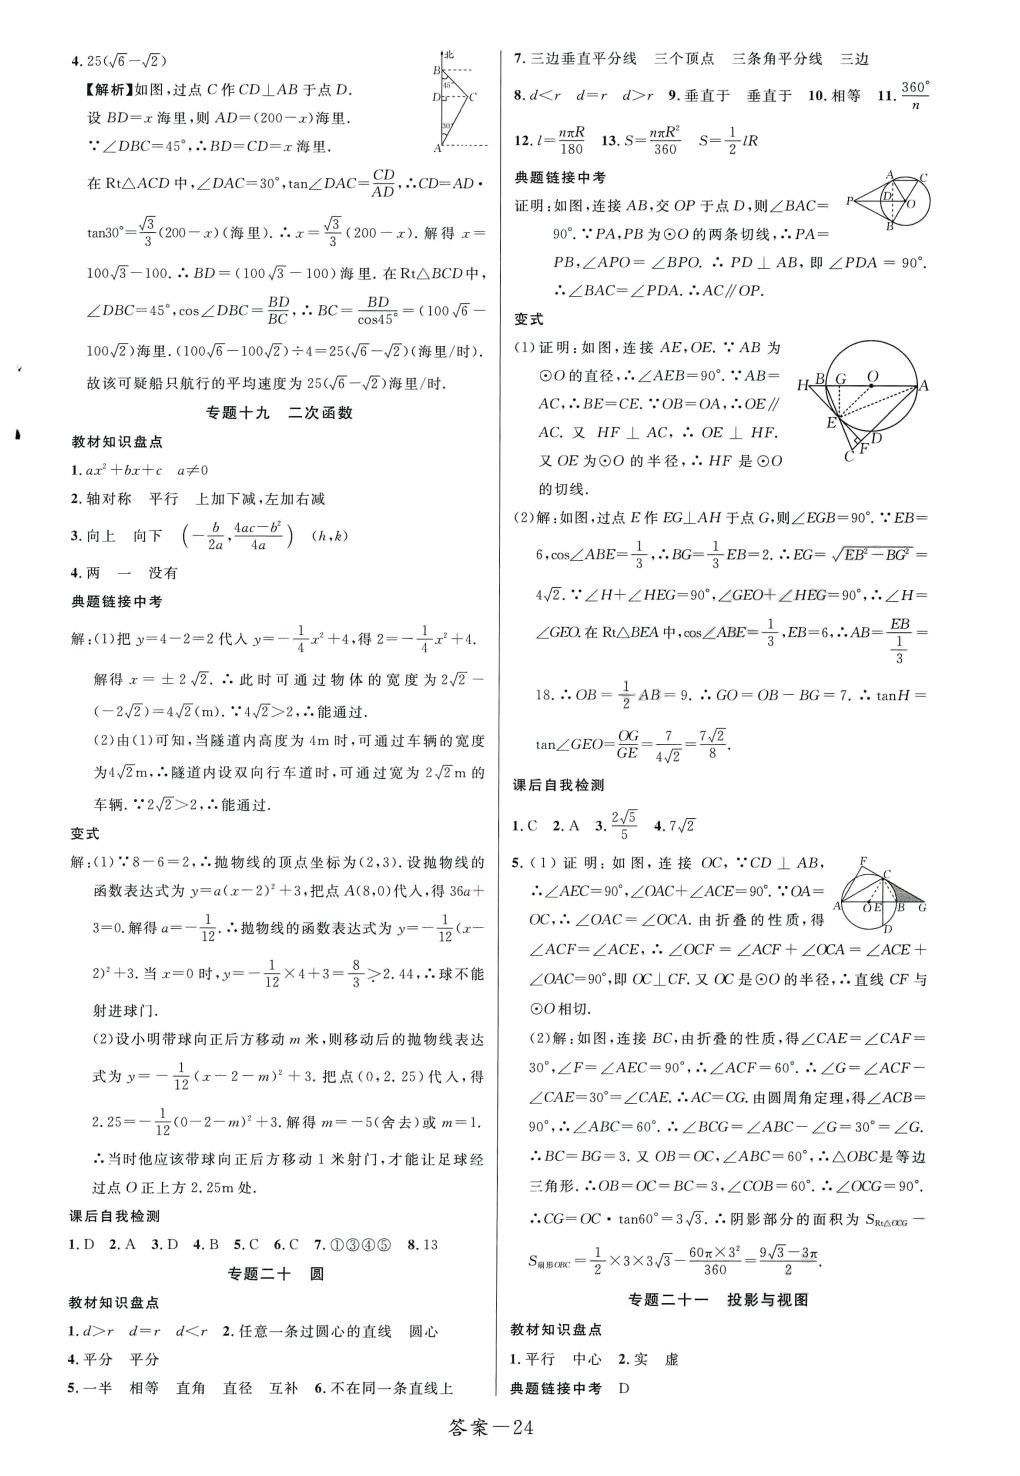 4. 25(√6－√2)
【解析】如图,过点 C 作 CD⊥AB 于点 D.
设 BD=x 海里,则 AD=(200－x)海里.
∵∠DBC=45°,∴BD=CD=x 海里.
在 Rt△ACD 中,∠DAC=30°,tan∠DAC=CD/AD,∴CD=AD·
tan30°=√3/3(200－x)(海里).∴x=√3/3(200－x).解得 x=
100√3－100.∴BD=(100√3－100)海里.在Rt△BCD中,
∠DBC=45°,cos∠DBC=BD/BC,∴BC=BD/cos45°=(100√6－
100√2)海里.(100√6－100√2)÷4=25(√6－√2)(海里/时).
故该可疑船只航行的平均速度为 25(√6－√2)海里/时.
北
B
45°
D
C
30°
A
专题十九 二次函数
教材知识盘点
1. ax²+bx+c a≠0
2. 轴对称 平行 上加下减,左加右减
3. 向上 向下 (－b/2a, 4ac－b²/4a) (h,k)
4. 两 一 没有
典题链接中考
解:(1)把 y=4－2=2 代入 y=－1/4x²+4,得 2=－1/4x²+4.
解得 x=±2√2.∴此时可通过物体的宽度为2√2－
(－2√2)=4√2(m).∵4√2>2,∴能通过.
(2)由(1)可知,当隧道内高度为 4m 时,可通过车辆的宽度
为4√2m,∴隧道内设双向行车道时,可通过宽为 2√2m 的
车辆.∵2√2>2,∴能通过.
变式
解:(1)∵8－6=2,∴抛物线的顶点坐标为(2,3).设抛物线的
函数表达式为 y=a(x－2)²+3,把点 A(8,0)代人,得 36a+
3=0.解得 a=－1/12.∴抛物线的函数表达式为 y=－1/12(x－
2)²+3.当 x=0 时,y=－1/12×4+3=8/3>2.44,∴球不能
射进球门.
(2)设小明带球向正后方移动 m 米,则移动后的抛物线表达
式为 y=－1/12(x－2－m)²+3.把点(0,2.25)代人,得
2.25=－1/12(0－2－m)²+3.解得 m=－5(舍去)或 m=1.
∴当时他应该带球向正后方移动 1 米射门,才能让足球经
过点 O 正上方 2.25m 处.
课后自我检测
1. D 2. A 3. D 4. B 5. C 6. C 7. ①③④⑤ 8. 13
专题二十 圆
教材知识盘点
1. d>r d=r d<r 2. 任意一条过圆心的直线 圆心
4. 平分 平分
5. 一半 相等 直角 直径 互补 6. 不在同一条直线上
7. 三边垂直平分线 三个顶点 三条角平分线 三边
8. d<r d=r d>r 9. 垂直于 垂直于 10. 相等 11. 360°/n
12. l=nπR/180 13. S=nπR²/360 S=1/2lR
典题链接中考
证明:如图,连接 AB,交 OP 于点 D,则∠BAC=
90°.∵PA,PB 为⊙O 的两条切线,∴PA=
PB,∠APO=∠BPO.∴PD⊥AB,即∠PDA=90°.
∴∠BAC=∠PDA.∴AC∥OP.
A
C
P
D
O
B
变式
(1)证明:如图,连接 AE,OE.∵AB 为
⊙O 的直径,∴∠AEB=90°.∵AB=
AC,∴BE=CE.∵OB=OA,∴OE∥
AC.又 HF⊥AC,∴OE⊥HF.
又 OE 为⊙O 的半径,∴HF 是⊙O
的切线.
H
B
G
O
A
E
D
F
C
(2)解:如图,过点 E 作 EG⊥AH 于点 G,则∠EGB=90°.∵EB=
6,cos∠ABE=1/3,∴BG=1/3EB=2.∴EG=√(EB²－BG²)=
4√2.∵∠H+∠HEG=90°,∠GEO+∠HEG=90°,∴∠H=
∠GEO.在 Rt△BEA 中,cos∠ABE=1/3,EB=6,∴AB=EB/(1/3)=
18.∴OB=1/2AB=9.∴GO=OB－BG=7.∴tanH=
tan∠GEO=OG/GE=7/4√2=7√2/8.
课后自我检测
1. C 2. A 3. 2√5/5 4. 7√2
5. (1)证明:如图,连接 OC,∵CD⊥AB,
∴∠AEC=90°,∠OAC+∠ACE=90°.∵OA=
OC,∴∠OAC=∠OCA.由折叠的性质,得
∠ACF=∠ACE,∴∠OCF=∠ACF+∠OCA=∠ACE+
∠OAC=90°,即 OC⊥CF.又 OC 是⊙O 的半径,∴直线 CF 与
⊙O 相切.
F
C
A
O
E
B
G
D
(2)解:如图,连接 BC,由折叠的性质,得∠CAE=∠CAF=
30°,∠F=∠AEC=90°,∴∠ACF=60°.∴∠G=∠ACF－
∠CAE=30°=∠CAE.∴AC=CG.由圆周角定理,得∠ACB=
90°,∴∠ABC=60°.∴∠BCG=∠ABC－∠G=30°=∠G.
∴BC=BG=3.又 OB=OC,∠ABC=60°,∴△OBC是等边
三角形.∴OB=OC=BC=3,∠COB=60°.∴∠OCG=90°.
∴CG=OC·tan60°=3√3.∴阴影部分的面积为 S Rt△OCG－
S扇形OBC=1/2×3×3√3－60π×3²/360=9√3－3π/2.
专题二十一 投影与视图
教材知识盘点
1. 平行 中心 2. 实 虚
典题链接中考 D
答案－24